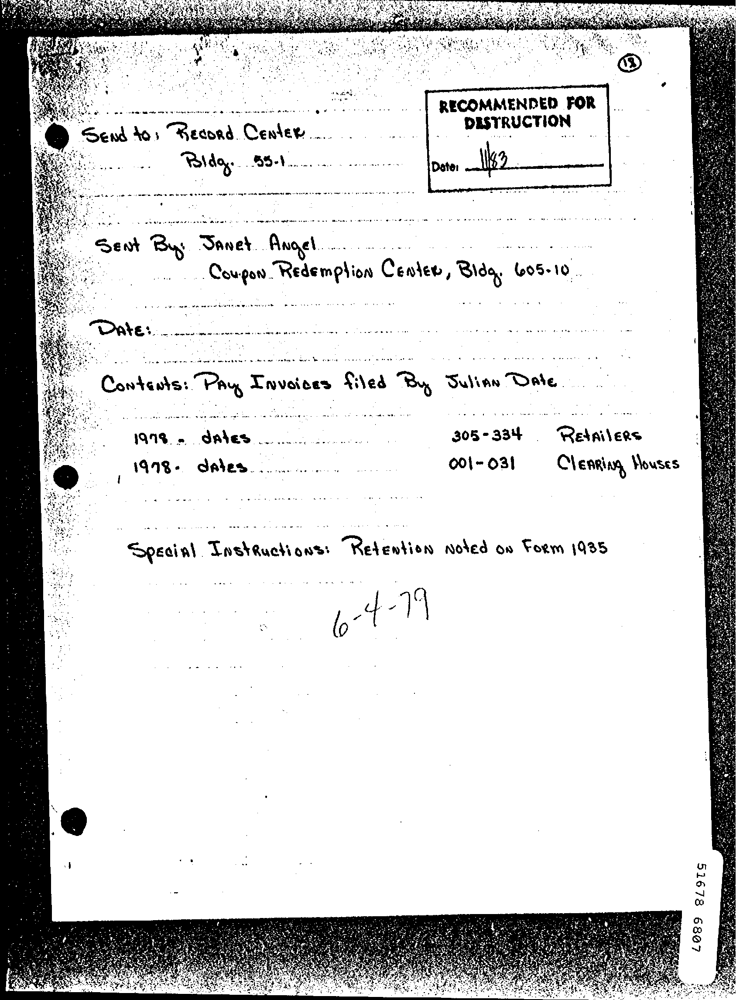 18
RECOMMENDED FOR
DESTRUCTION
Date: 11/83
Send to: Record Center
Bldg. 55-1
Sent By: Janet Angel
Coupon Redemption Center, Bldg. 605-10
Date:
Contents: Pay Invoices filed By Julian Date
1978 - dates 305-334 Retailers
1978 - dates 001-031 Clearing Houses
Special Instructions: Retention noted on Form 1935
6-4-79
51678 6807